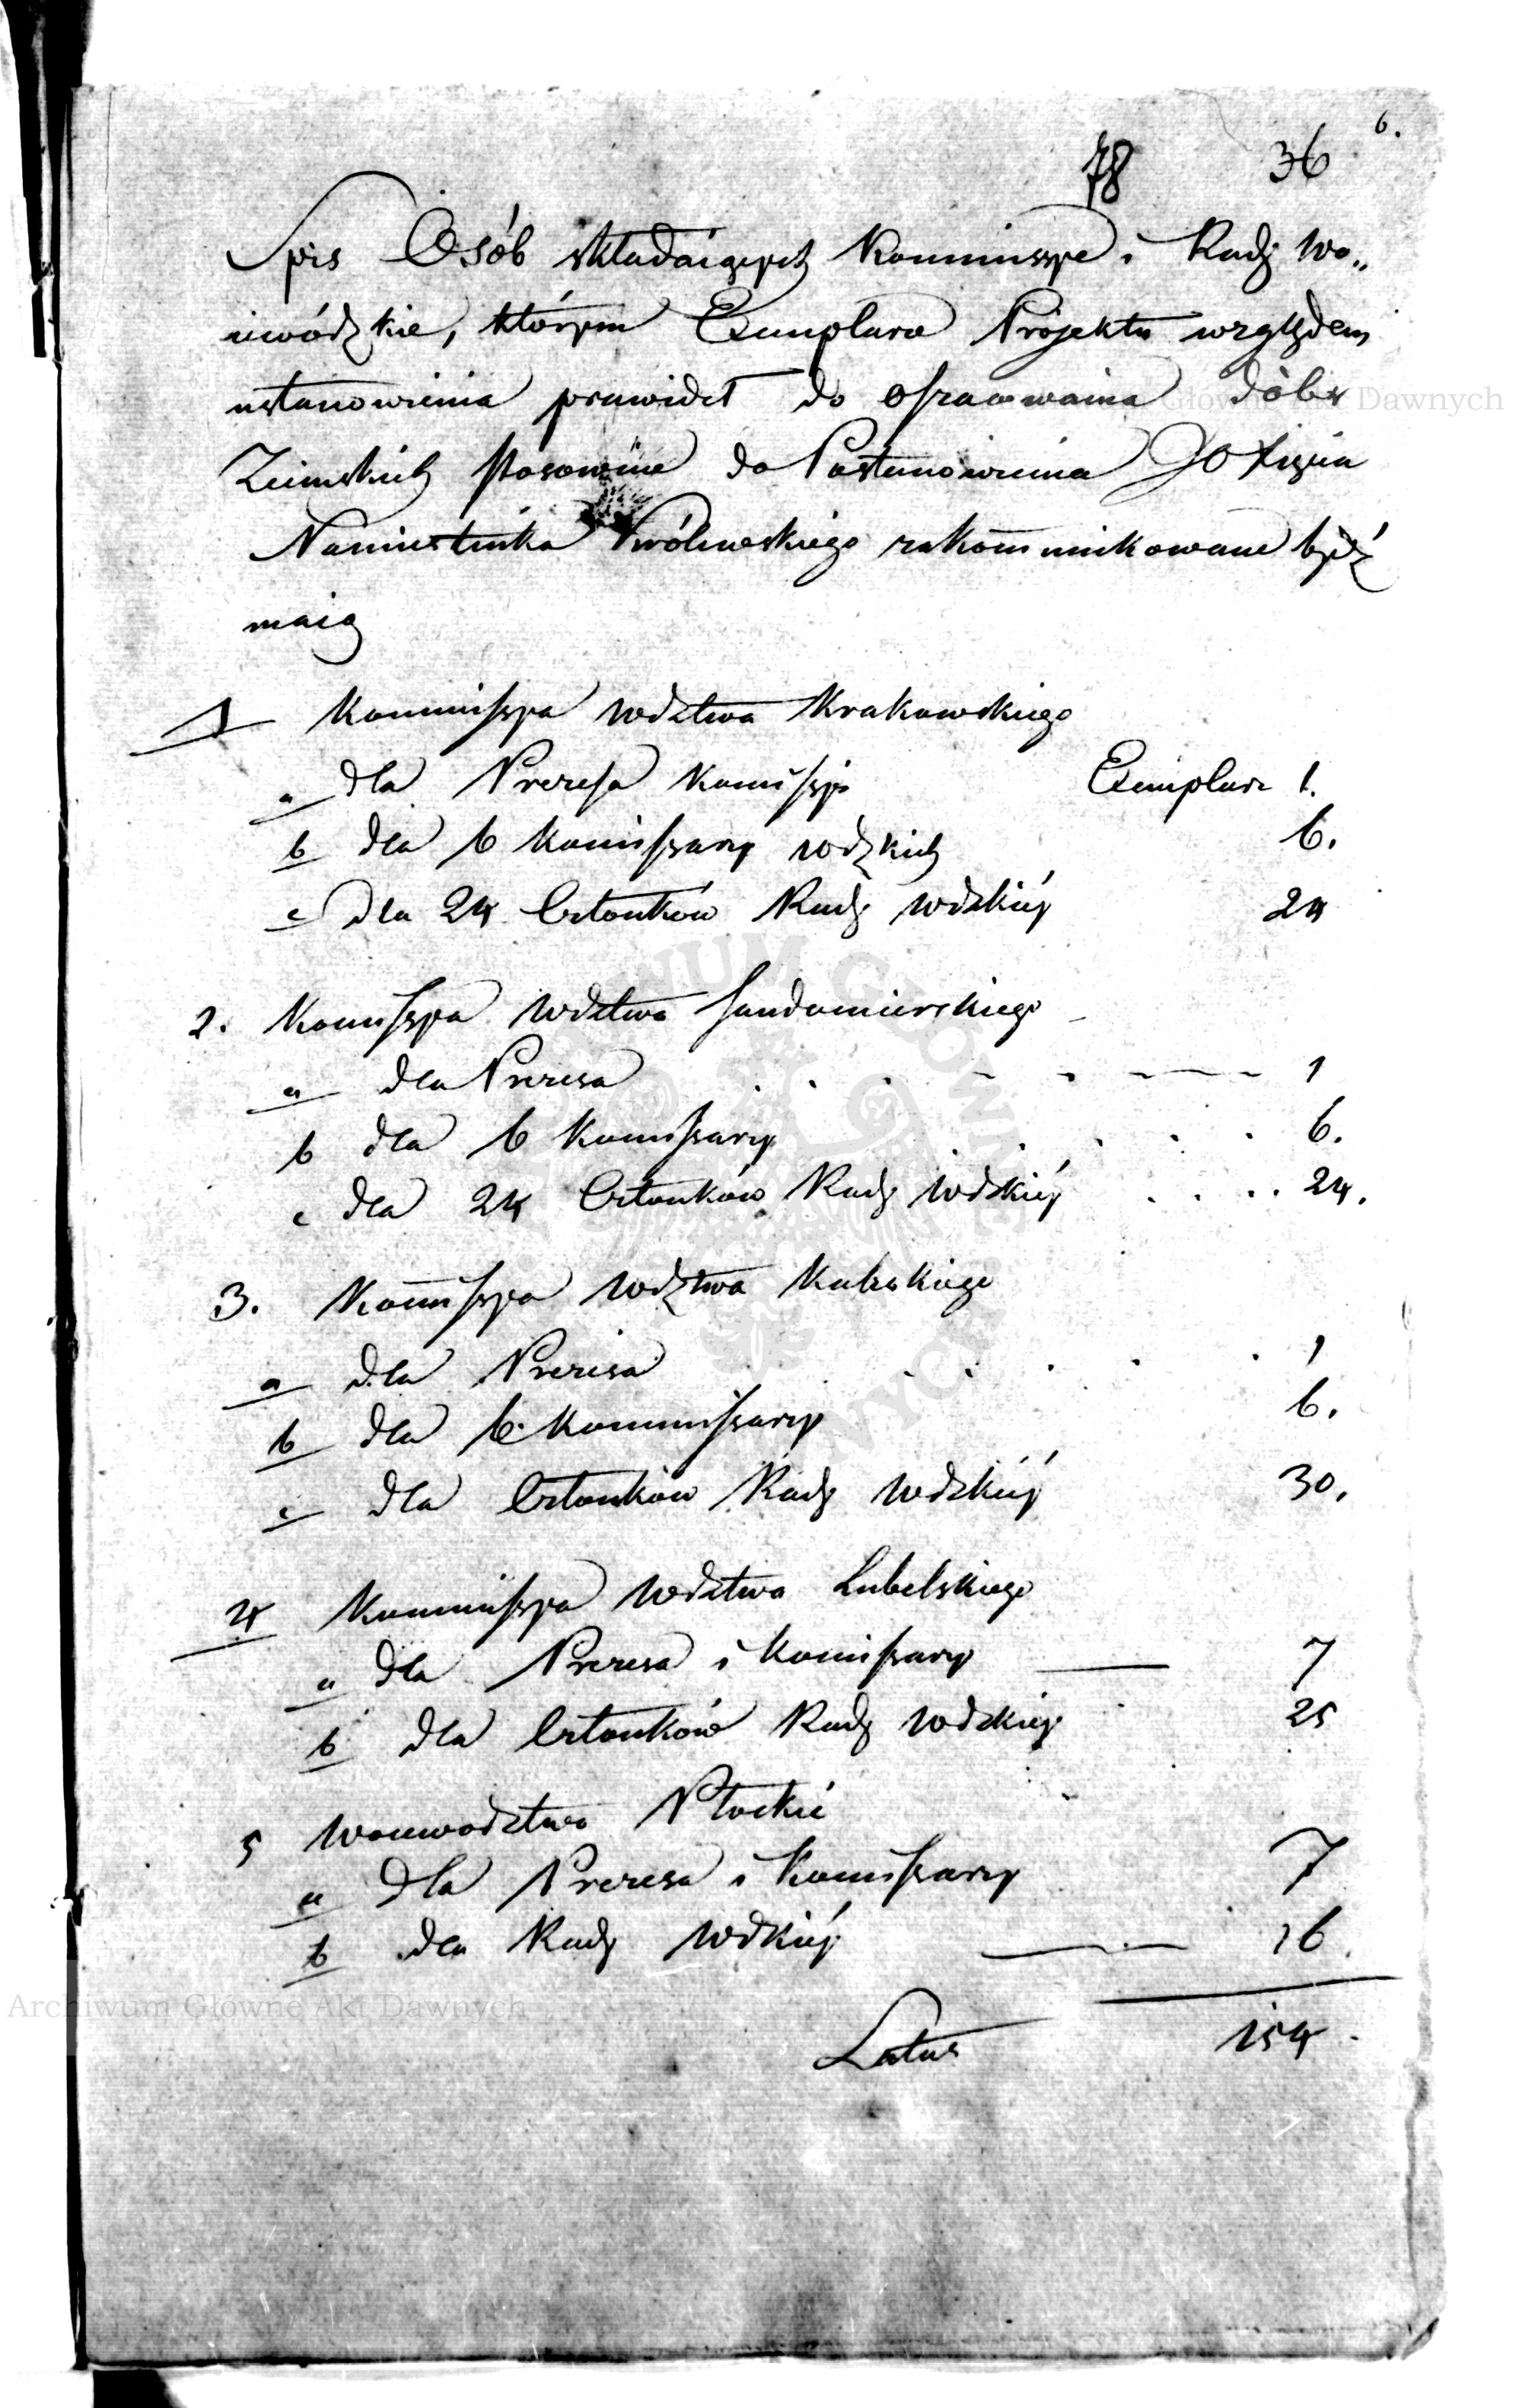 6.
78 36
Spis Osób składaiących Kommissye i Rady Wo„
iewódzkie, którym Exemplarze Projektu względem
ustanowienia prawideł do oszacowania dóbr
Ziemskich stosownie do Postanowienia JO Xięcia
Namiestnika Królewskiego zakommunikowane bydź
maią
1 Kommissya Wdztwa Krakowskiego
a dla Prezesa Komissyi Exemplarz 1.
b dla 6 Komissarzy Wdzkich 6.
c dla 24 Członków Rady Wdzkiéy 24
2. Komissya Wdztwa Sandomierskiego
a dla Prezesa 1
b dla 6 Komissarzy 6.
c dla 24 Członków Rady Wdzkiéy 24.
3. Komissya Wdztwa Kaliskiego
a dla Prezesa 1
b dla 6 Kommissarzy 6.
c dla Członków Rady Wdzkiéy 30.
4 Kommissya Wdztwa Lubelskiego
a dla Prezesa i Komissarzy 7
b dla Członków Rady Wdzkiéy 25
5 Woiewodztwo Płockie
a dla Prezesa i Komissarzy 7
b dla Rady Wdzkiéy 16.
Latus 154
Archiwum Główne Akt Dawnych